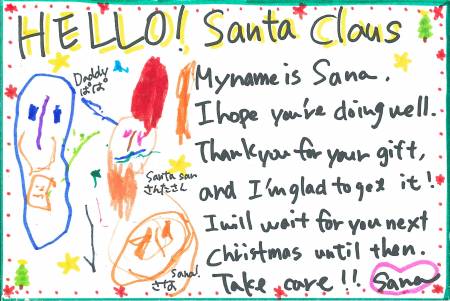 HELLO! Santa Claus
Daddy
ぱぱ
My name is Sana.
I hope you're doing well.
Thank you for your gift,
Santa san
さんたさん
and I'm glad to get it!
I will wait for you next
Christmas until then.
Sana!
さな
Take care!! Sana